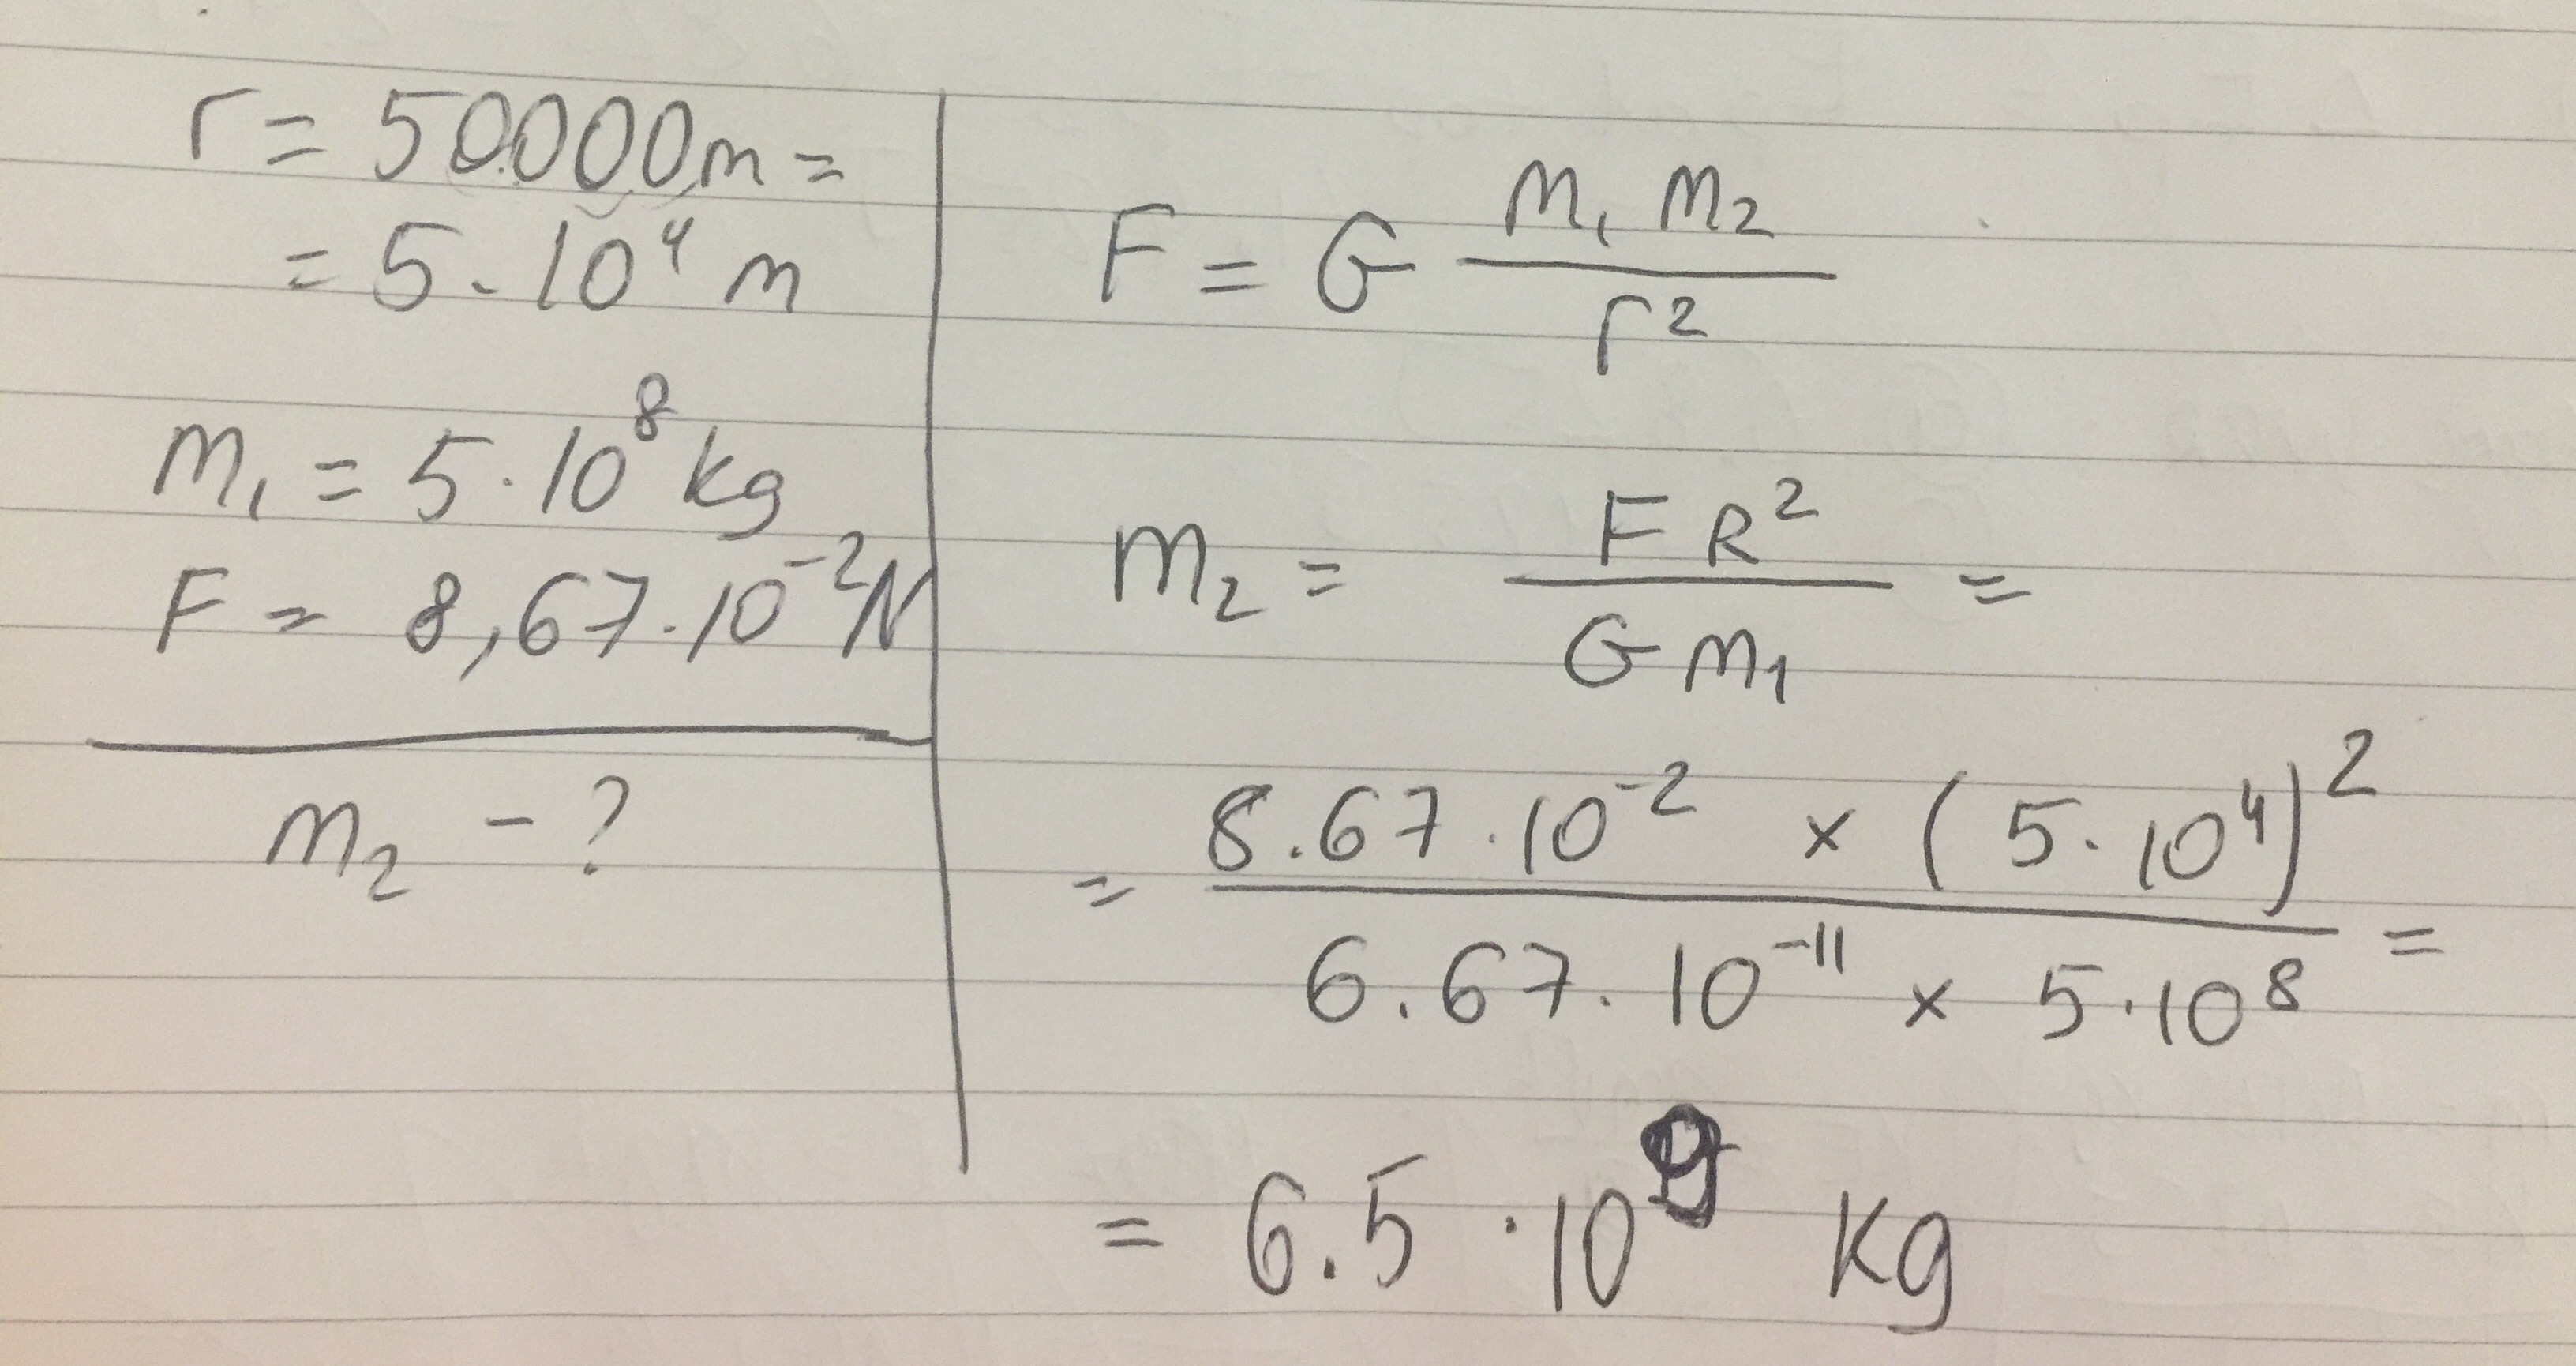 r = 50000m =
= 5·10⁴ m
m₁ = 5·10⁸ kg
F = 8,67·10⁻²N
m₂ - ?
F = G m₁ m₂ / r²
m₂ = F R² / G m₁ =
= 8.67·10⁻² × (5·10⁴)² / 6.67·10⁻¹¹ × 5·10⁸ =
= 6.5·10⁹ kg